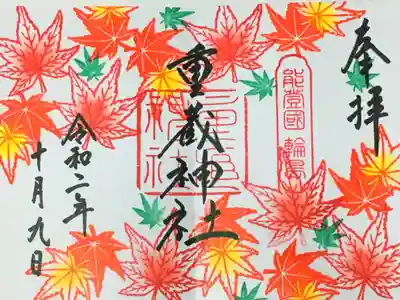 奉拝
能登國 輪島
重蔵神社
令和二年
十月九日